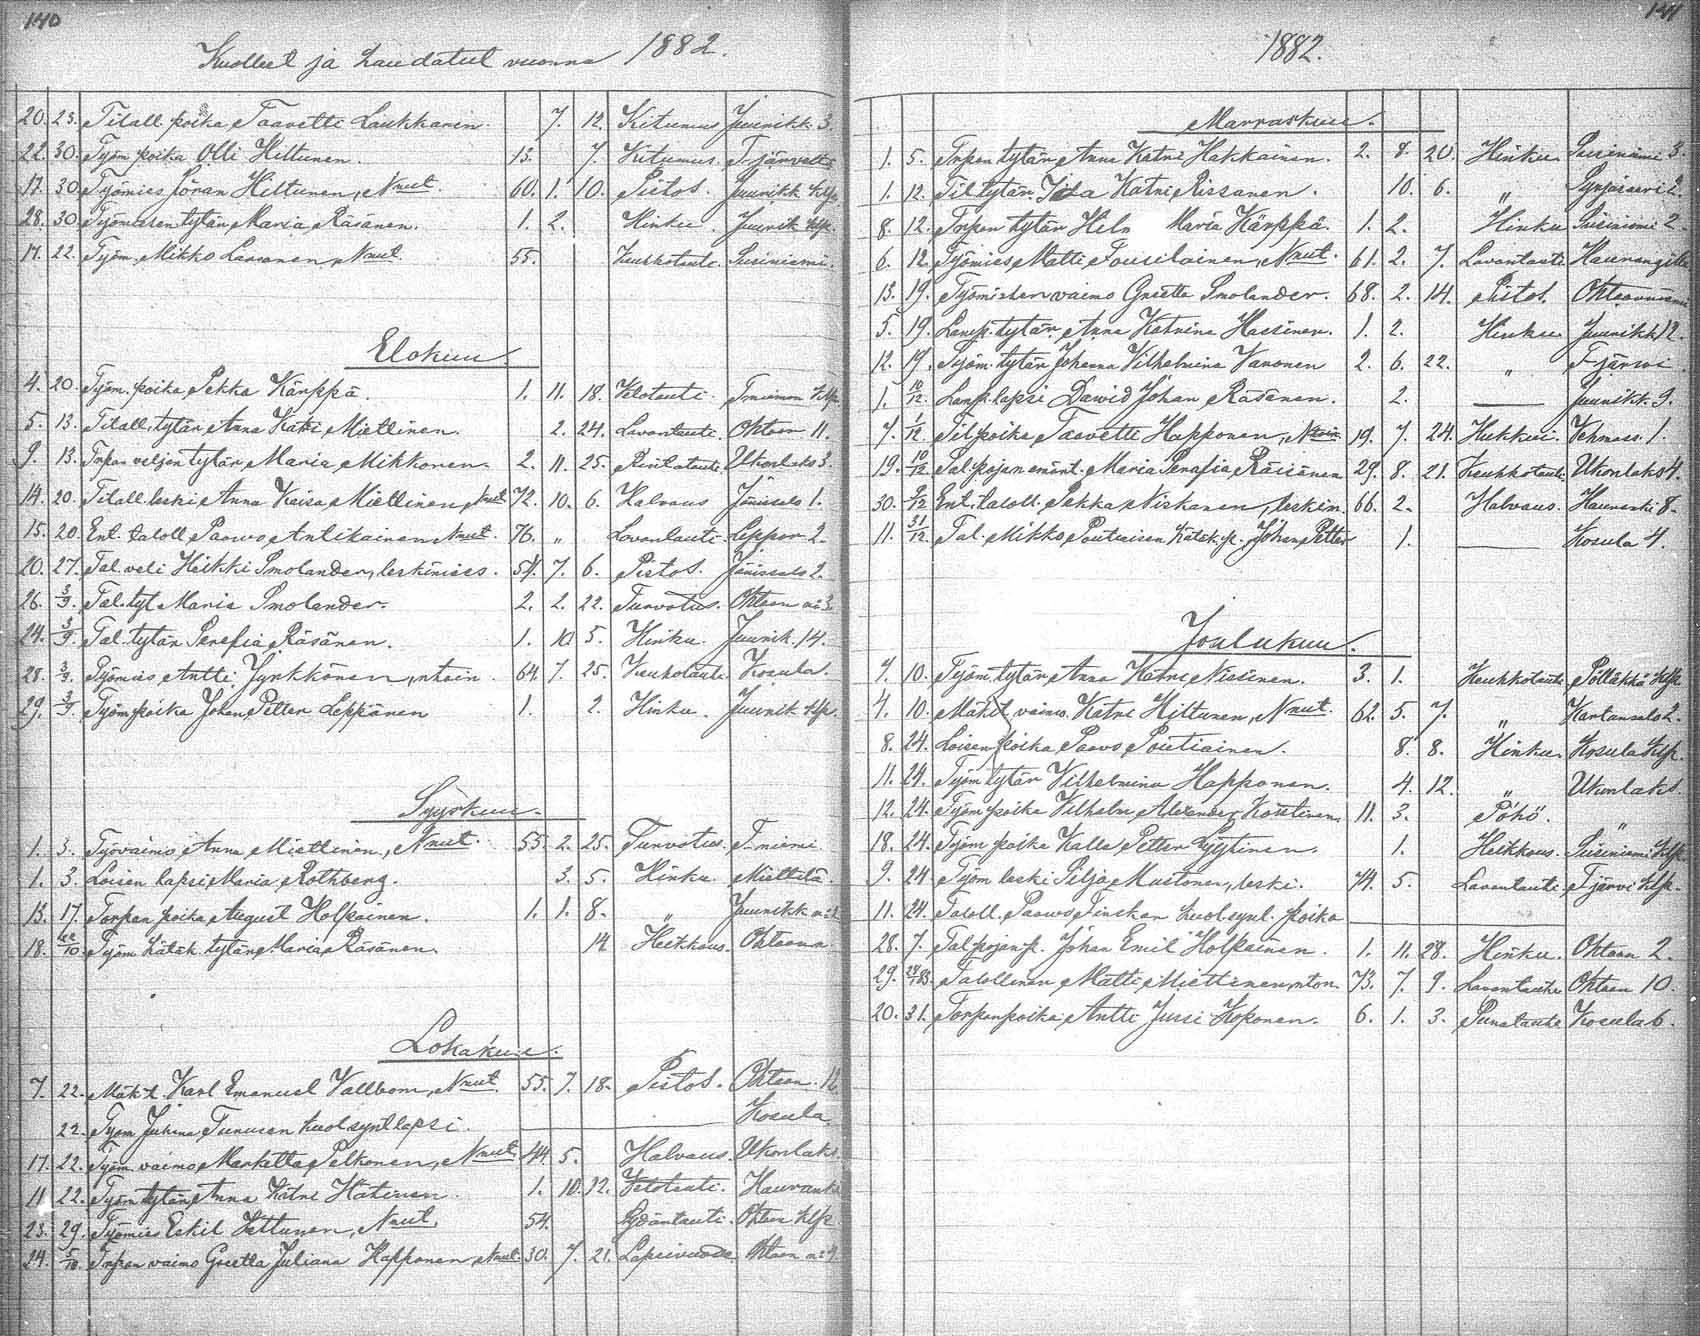 140
Kuolleet ja haudatut vuonna 1882.
20. 23. Titall. poika Taavetti Laukkarin. 7. 12. Kitumus Juurikk. 3.
22. 30. Työm. poika Olli Hiltunen. 13. 7. Kitumus. T-järvelta
17. 30. Työmies Göran Hiltunen, Nnut. 60. 1. 10. Pistos. Juurikk klp.
28. 30. Työmiesen tytär Maria Räsänen. 1. 2. Hinku. Juurik klp.
17. 22. Työm. Mikko Lassanen, Nnut. 55. Keuhkotauti. Susiniemi.
Elokuu.
4. 20. Työm. poika Pekka Kärppä. 1. 11. 18. Velotauti. T-niemen klp.
5. 13. Titall. tytär Anna Katri Miettinen. 2. 24. Lavantauti. Ohtaan 11.
9. 13. Trpan veljen tytär Maria Mikkonen. 2. 11. 25. Risitauti Ukonlaks 3.
14. 20. Titall. leski Anna Kaisa Miettinen, Nnut. 72. 10. 6. Halvaus Jänissalo 1.
15. 20. Ent. taloll. Paavo Antikainen Nnut. 76. " Lavantauti. Leppär 2.
20. 27. Tal. veli Heikki Smolander, leskimies. 54. 7. 6. Pistos. Jänissalo 2.
26. 3/9. Tal. tyt Maria Smolander. 2. 2. 22. Turvotus. Ohtaan n:3.
24. 3/9. Tal. tytär Serefia Räsänen. 1. 10. 5. Hinku. Juurik. 14.
28. 3/9. Työmies Antti Jyrkkönen, ntoin. 64. 7. 25. Keuhkotauti Kosula.
29. 3/9. Työm poika Johan Petter Leppänen 1. 2. Hinku. Juurik klp.
Syyskuu.
1. 3. Työvaimo Anna Miettinen, Nnut. 55. 2. 25. Turvotus. T-niemi
1. 3. Loisen lapsi Maria Rothberg. 3. 5. Hinku. Miettilä.
13. 17. Torpan poika August Holpainen. 1. 1. 8. " Juurikk n:2
18. 22/10 Työm kätök. tytär Maria Räsänen. 14 Heikkous. Ohtaann
Lokakuu.
7. 22. Mäk:t. Karl Emanuel Vallbom, Nnut. 55. 7. 18. Pistos. Ohtaan. 12
22. Työm Juhana Turusen kuol synt lapsi. Kosula
17. 22. Työm. vaimo Marketta Pelkonen, Nnut. 44. 5. Halvaus. Ukonlaks.
11 22. Työm tytär Anna Katri Hätinen. 1. 10. 12. Velotauti. Hauranki
23. 29. Työmies Eskil Hettunen, Nnut. 54. Sydäntauti. Ohtan klp
24. 5/10. Trpan vaimo Greetta Juliana Happonen, Nnut. 30. 7. 21. Lapsivuode. Ohtaan n:4
141
1882.
Marraskuu.
1. 5. Trpan tytär Anna Katri Hakkainen. 2. 8. 20. Hinku. Susiniemi 3.
1. 12. Til. tytär. Ida Katri Rissanen. 10. 6. " Syrjäsaari 2.
8. 12. Trpan tytär Heln Maria Kärppä. 1. 2. Hinku Susiniemi 2.
6. 12. Työmies Matti Tousilainen, Nnut. 61. 2. 7. Lavantauti
13. 19. Työmiehen vaimo Greetta Smolander. 68. 2. 14. Pistos. Ohtaanniemi
5. 19. Lamp. tytär Anna Katrina Hassinen. 1. 2. Hinku. Juurikk 12.
12. 19. Työm. tytär Johanna Vilhelmina Varonen 2. 6. 22. " T-järvi.
1. 10/12. Lamp. lapsi Dawid Johan Räsänen. 2. Juurikk. 9.
7. 1/12. Til poika Taavetti Happonen, Ntoin. 19. 7. 24. Hukkui. Vehmas. 1.
19. 10/12 Tal. pojan emänt. Maria Serafia Räisänen 29. 8. 21. Keuhkotauti. Ukonlaks 4.
30. Ent. taloll. Pekka Niskanen, leskim. 66. 2. Halvaus. Hauranki 8.
11. 31/12. Tal. Mikko Poutiaisen kätök. p. Johan Petter 1. Kosula 4.
Joulukuu.
4. 10. Työm. tytär Anna Katri Nissinen. 3. 1. Keuhkotauti. Pölläkkä klp.
4. 10. Mäkit. vaimo. Katri Hiltunen, Nnut. 62. 5. 7. " Kartansalo 2.
8. 24. Loisen poika Paavo Poutiainen. 8. 8. Hinku. Kosula klp.
11. 24. Työm tytär Vilhelmina Happonen. 4. 12. " Ukonlaks.
12. 24. Työm poika Vilhelm Alexander Kosstinen. 11. 3. Pöhö. "
18. 24. Työm poika Kalla Petter Pyytinen. 1. Heikkous. Susiniemi klp.
9. 24. Työm leski Silja Mustonen, leski. 74. 5. Lavantauti T-järvi klp.
11. 24. Taloll. Paavo Finskan kuol. synt. poika
28. 7. Tal pojan p. Johan Emil Holpainen. 1. 11. 28. Hinku. Ohtaan 2.
29. Talollinen Matti Miettinen, nton. 73. 7. 9. Lavantauti Ohtaan 10.
20. 31. Torpan poika Antti Jussi Koponen. 6. 1. 3. Punatauti Kosula 6.